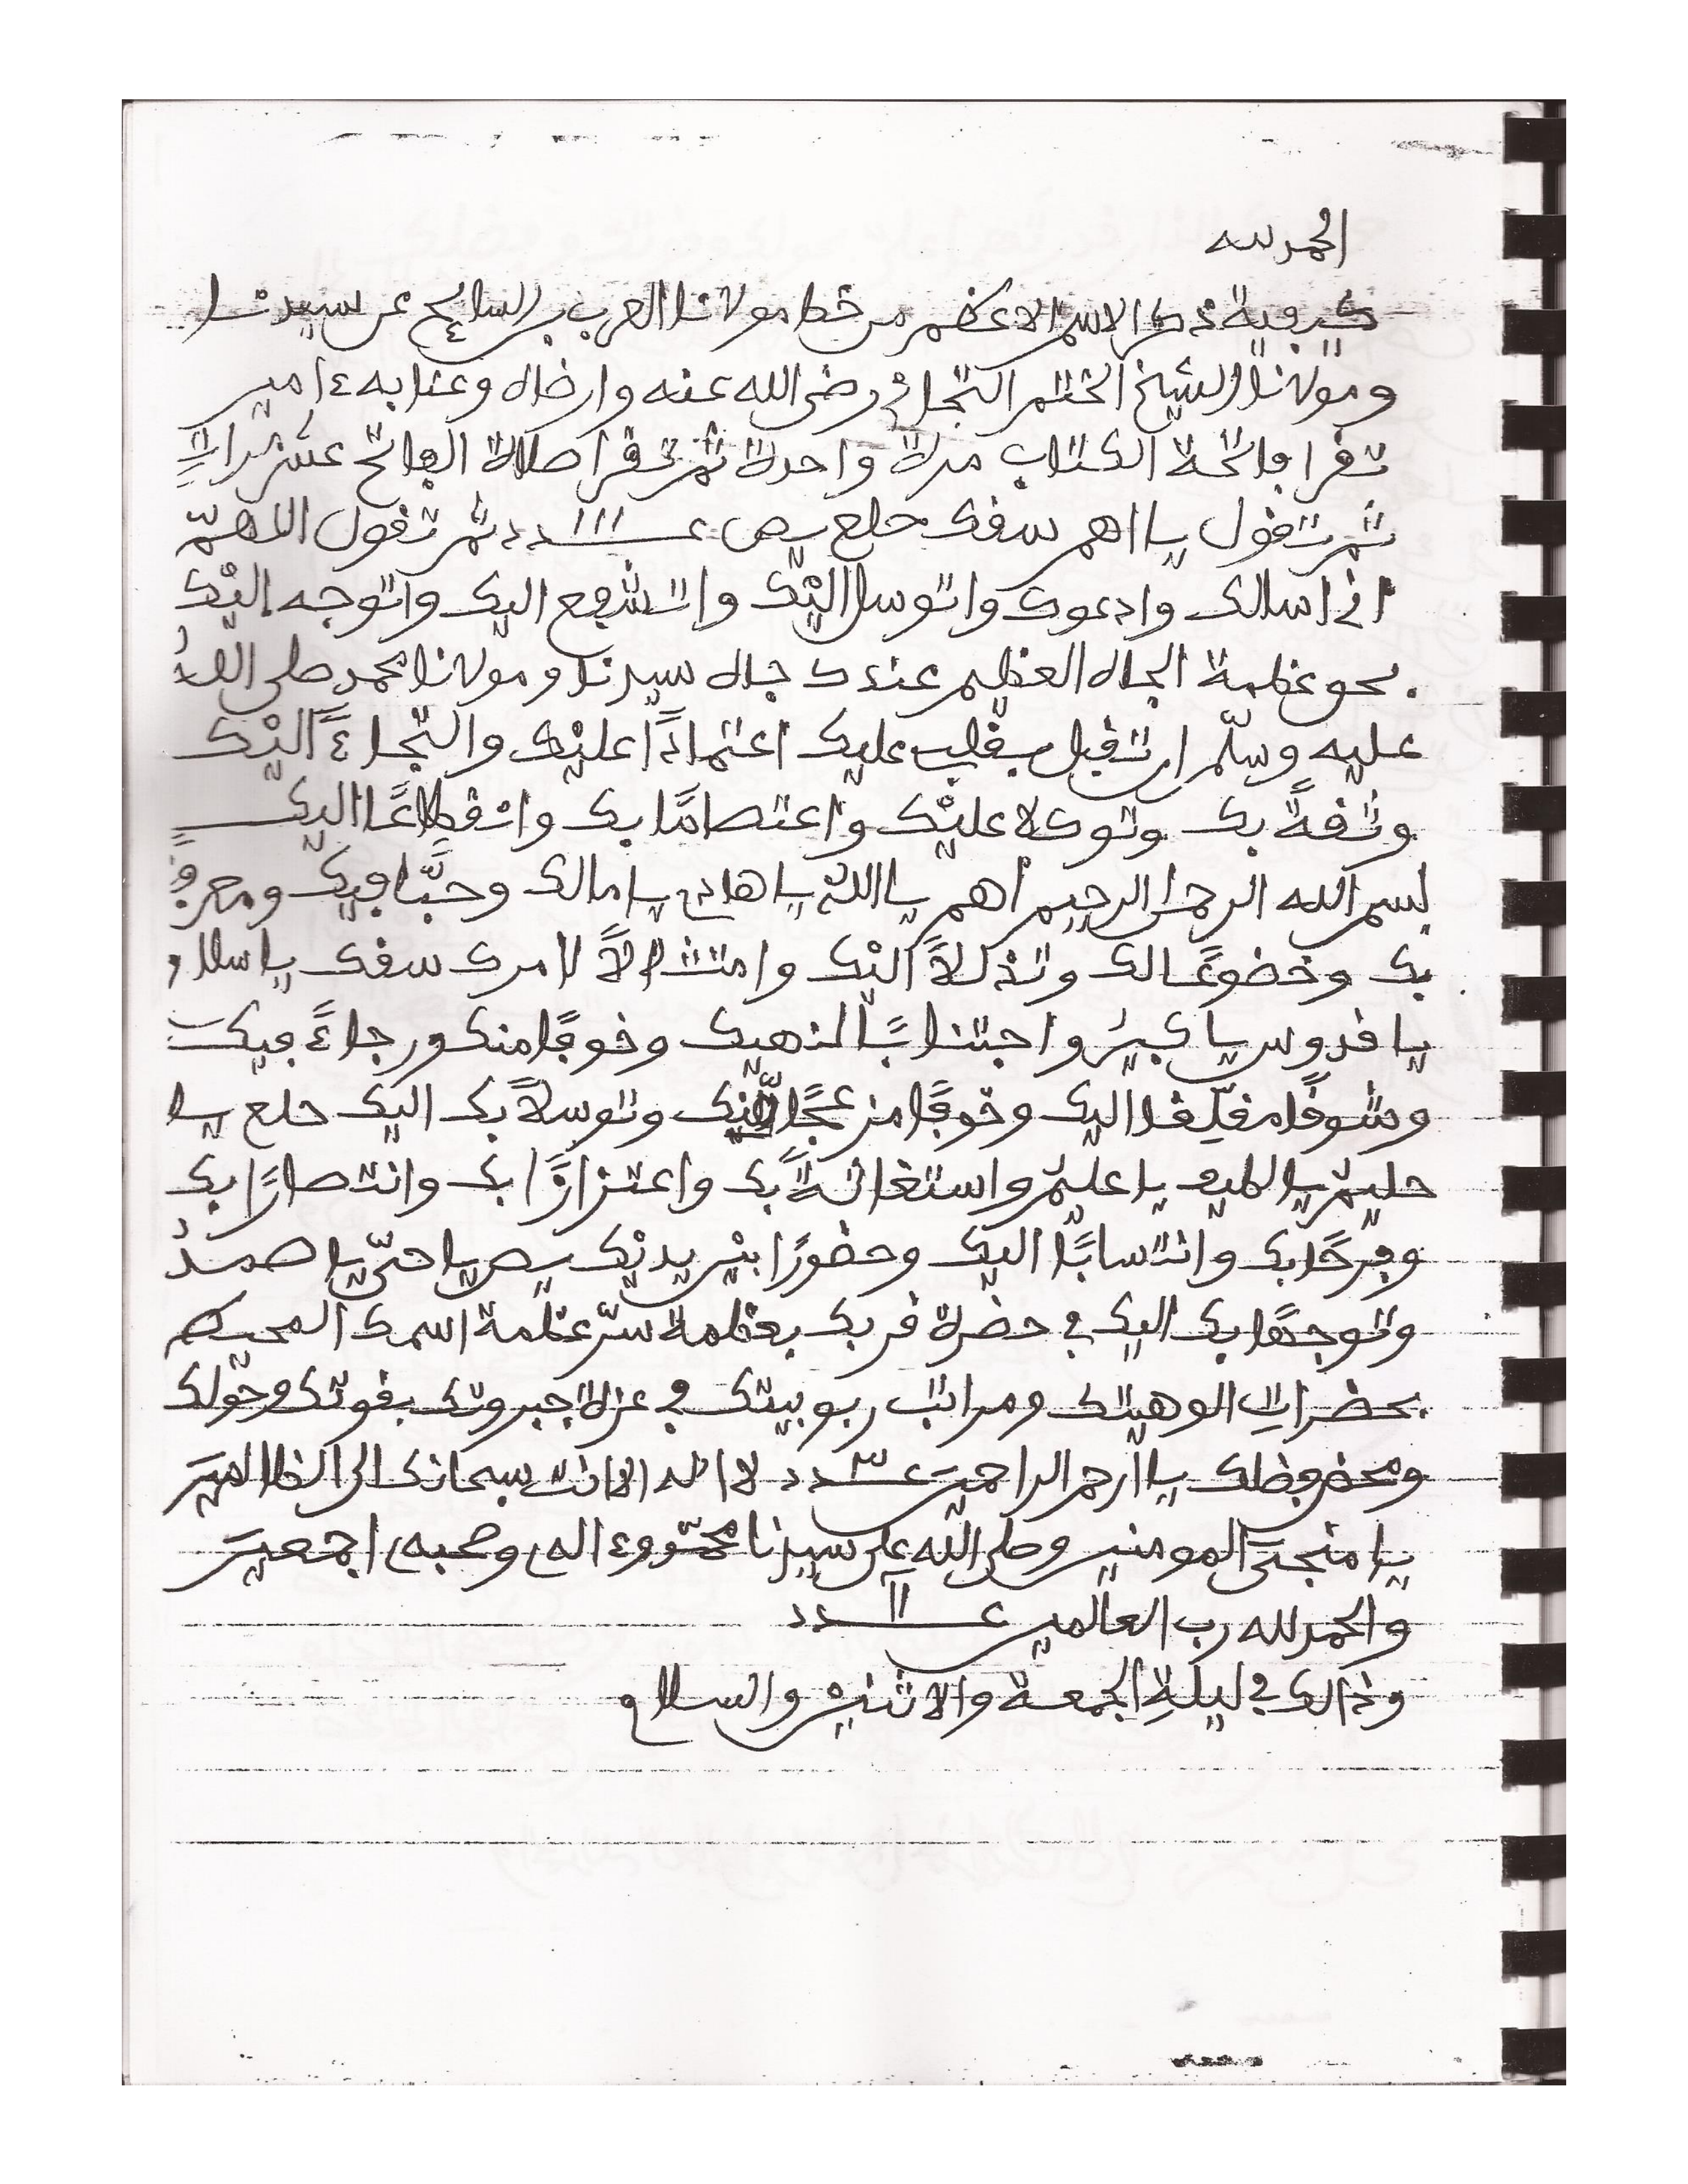 الحمد لله
كيفية ذكر الاسم الاعظم من خط مولانا العرب بن السايح عن سيدنا
ومولانا الشيخ الختم التجاني رضي الله عنه وارضاه وعنا به ءامين
تقرا فاتحة الكتاب مرة واحدة ثم تقرا صلاة الفاتح عشر مرات
ثم تقول يا اهم سقك حلع يص عـــدد ثم تقول اللاهمّ
اني اسالك وادعوك واتوسل اليْك واتشفع اليك واتوجه إليْك
بحق عظمة الجاه العظيم عندك جاه سيدنا ومولانا محمد صلى اللهُ
عليه وسلّم ان تقبل بقلبي عليك اعتماداً عليْك والتجاءً اليْك
وثقةً بك وتوكلا عليْك واعتصامًا بك وانْقطاعًا اليك
بسم الله الرحمن الرحيم أهم يا اللهُ يا هادي يا مالك وحبًّا فيك ومعرفةً
بك وخضوعًا لك وتذللاً اليْك وامتثالاً لامرك سقك يا سلام
يا قدوس يا كبيرُ واجتنابًا لنهيك وخوفًا منك ورجاءً فيك
وشوقًا مقلّقا اليك وخوفًا مزعجًا اليك وتوسلاً بك اليك حلع يا
حليمُ يا لطيف يا عليمُ واستغاثةً بك واعتزازًا بك وانتصارًا بك
وفرحًا بك وانتسابًا اليك وحضورًا بيْن يديْك يص يا حيّ يا صمدُ
وتوجهًا بك اليك في حضرة قربك بعظمة سرّ عظمة اسمك المحيط
بحضرات الوهيتك ومراتب ربوبيتك في عزة جبروتك بقوتك وحولك
ومحض فضلك يا أرحم الراحمين عـــدد لا اله الا انت سبحانك اني كنت من الظالمين
يا منجي المومنين وصلى الله على سيدنا محمّد وءاله وصحبه اجمعين
والحمد لله رب العالمين عـــدد
وذالك في ليلة الجمعة والاثنين والسلام